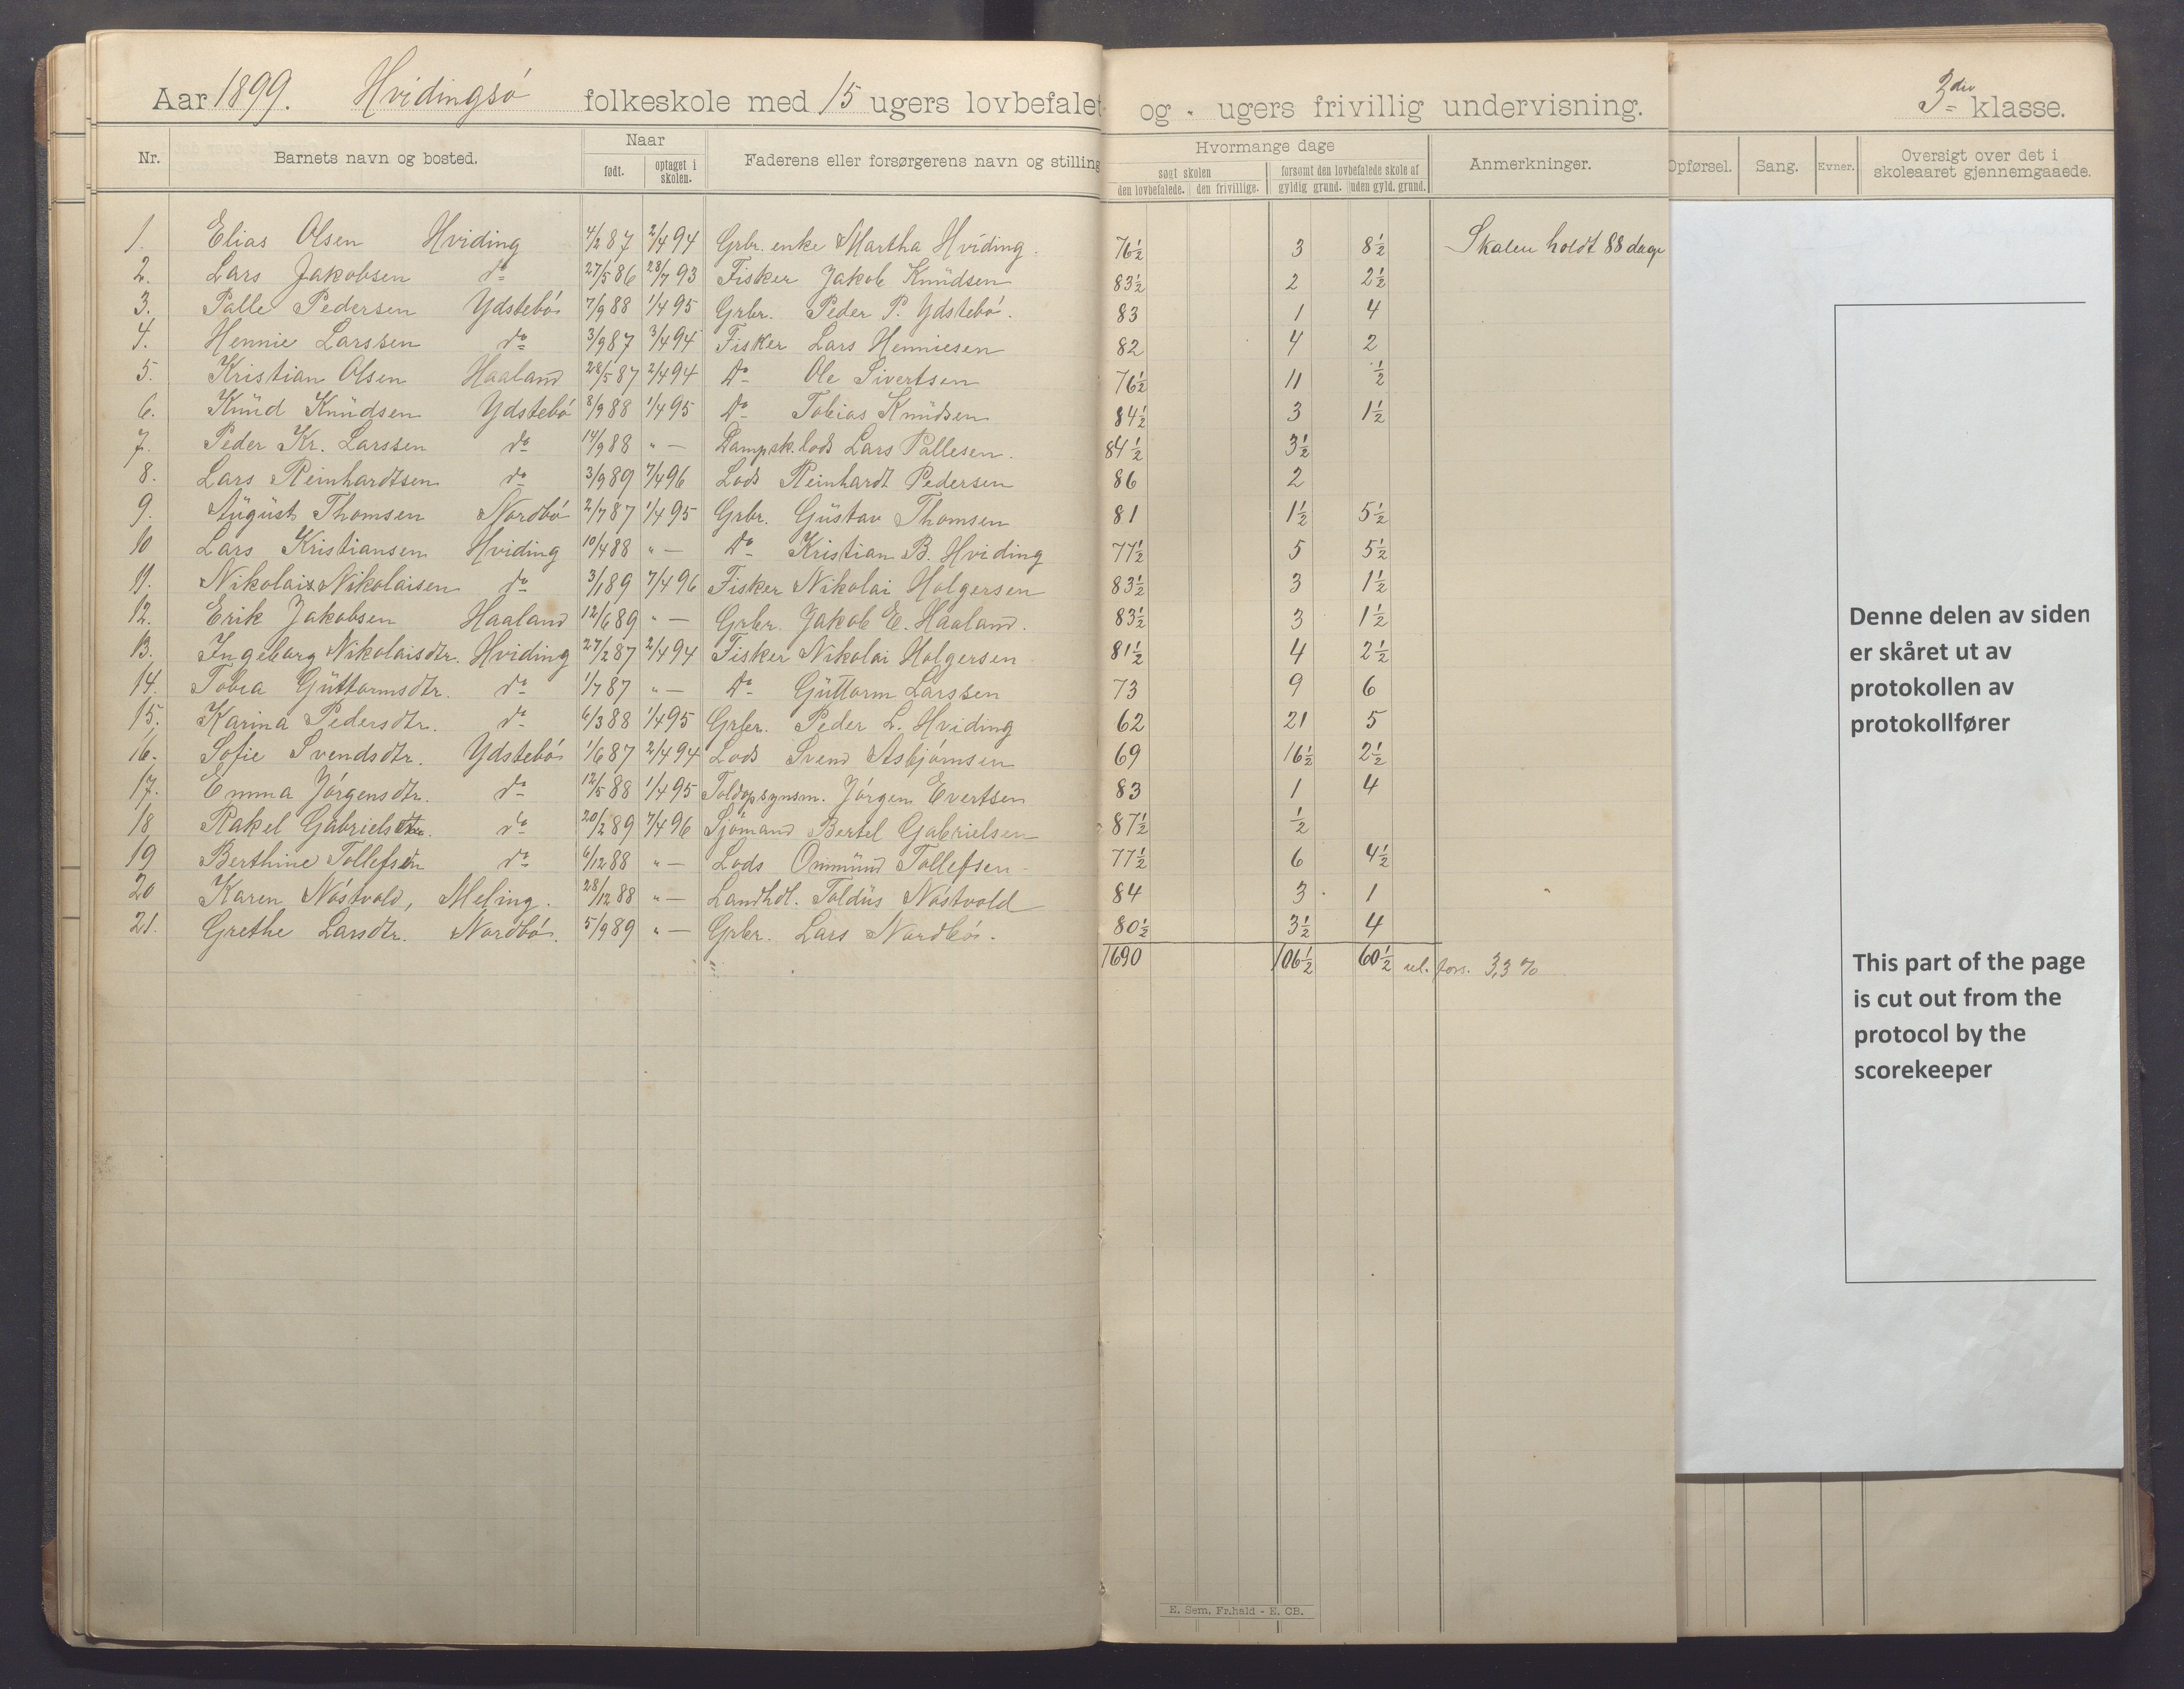 Aar 1899. Hvidingsö folkeskole med 15 ugers lovbefalet og - ugers frivillig undervisning. 3die klasse.
Nr. Barnets navn og bosted. Naar født. optaget i skolen. Faderens eller forsørgerens navn og stilling Hvormange dage søgt skolen den lovbefalede. den frivillige. forsømt den lovbefalede skole af gyldig grund. uden gyld. grund. Anmerkninger. Opførsel. Sang. Evner. Oversigt over det i skoleaaret gjennemgaaede.
1. Elias Olsen Hviding 4/2 87 2/4 94 Grbr. enke Martha Hviding. 76½ 3 8½ Skolen holdt 88 dage
2. Lars Jakobsen do 27/5 86 28/7 93 Fisker Jakob Knudsen 83½ 2 2½
3. Palle Pedersen Ydstebö 7/9 88 1/4 95 Grbr. Peder P. Ydstebö. 83 1 4
4. Hennie Larssen do 3/9 87 3/4 94 Fisker Lars Henniesen 82 4 2
5. Kristian Olsen Haaland 28/5 87 2/4 94 Do Ole Sivertsen 76½ 11 ½
6. Knud Knudsen Ydstebö 8/9 88 1/4 95 Do Tobias Knudsen 84½ 3 1½
7. Peder Kr. Larssen do 14/9 88 " — Dampsk. lods Lars Pallesen. 84½ 3½
8. Lars Reinhardtsen do 3/9 89 7/4 96 Lods Reinhardt Pedersen 86 2
9. August Thomsen Nordbö 2/7 87 1/4 95 Grbr. Gustav Thomsen 81 1½ 5½
10 Lars Kristiansen Hviding 10/4 88 " — Do Kristian B. Hviding 77½ 5 5½
11. Nikolai Nikolaisen do 3/1 89 7/4 96 Fisker Nikolai Holgersen 83½ 3 1½
12. Erik Jakobsen Haaland 12/6 89 " — Grbr. Jakob E. Haaland. 83½ 3 1½
13. Ingeborg Nikolaisdtr. Hviding 27/2 87 2/4 94 Fisker Nikolai Holgersen 81½ 4 2½
14. Tobia Guttormsdtr. do 1/7 87 " — Do Guttorm Larssen 73 9 6
15. Karina Pedersdtr. do 6/3 88 1/4 95 Grbr. Peder L. Hviding 62 21 5
16. Sofie Svendsdtr. Ydstebö 1/6 87 2/4 94 Lods Svend Asbjörnsen 69 16½ 2½
17. Emma Jörgensdtr. do 12/5 88 1/4 95 Toldopsynsm. Jörgen Evertsen 83 1 4
18 Rakel Gabrielsdtr. do 20/2 89 7/4 96 Sjömand Bertel Gabrielsen 87½ ½
19 Berthine Tollefsen do 6/12 88 " — Lods Ommund Tollefsen 77½ 6 4½
20 Karen Nöstvold, Meling. 28/12 88 " — Landhdl. Toldus Nöstvold 84 3 1
21. Grethe Larsdtr. Nordbö. 5/9 89 " — Grbr. Lars Nordbö. 80½ 3½ 4
1690 106½ 60½ ul. fors. 3,3 %
Denne delen av siden
er skåret ut av
protokollen av
protokollfører
This part of the page
is cut out from the
protocol by the
scorekeeper
E. Sem, Fr.hald - E. CB.